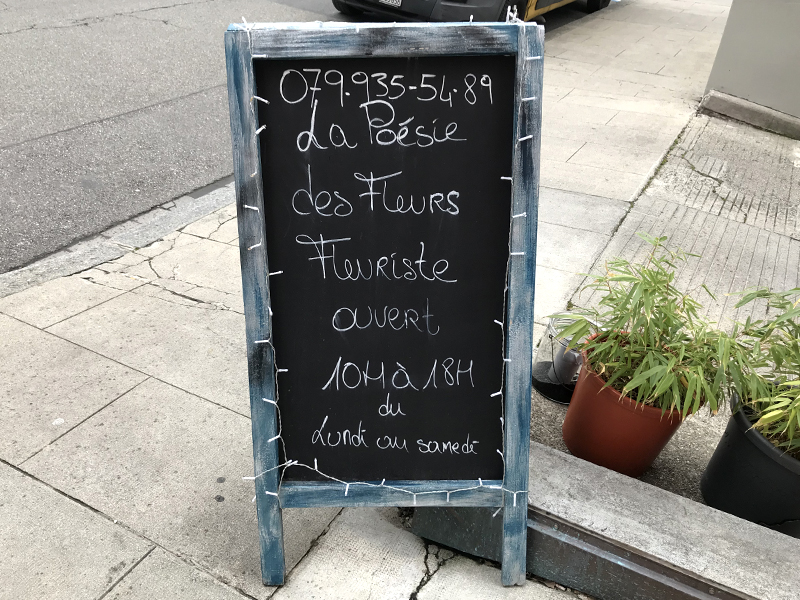 079.935-54.89
La Poésie
des Fleurs
Fleuriste
ouvert
10H à 18H
du
Lundi au samedi